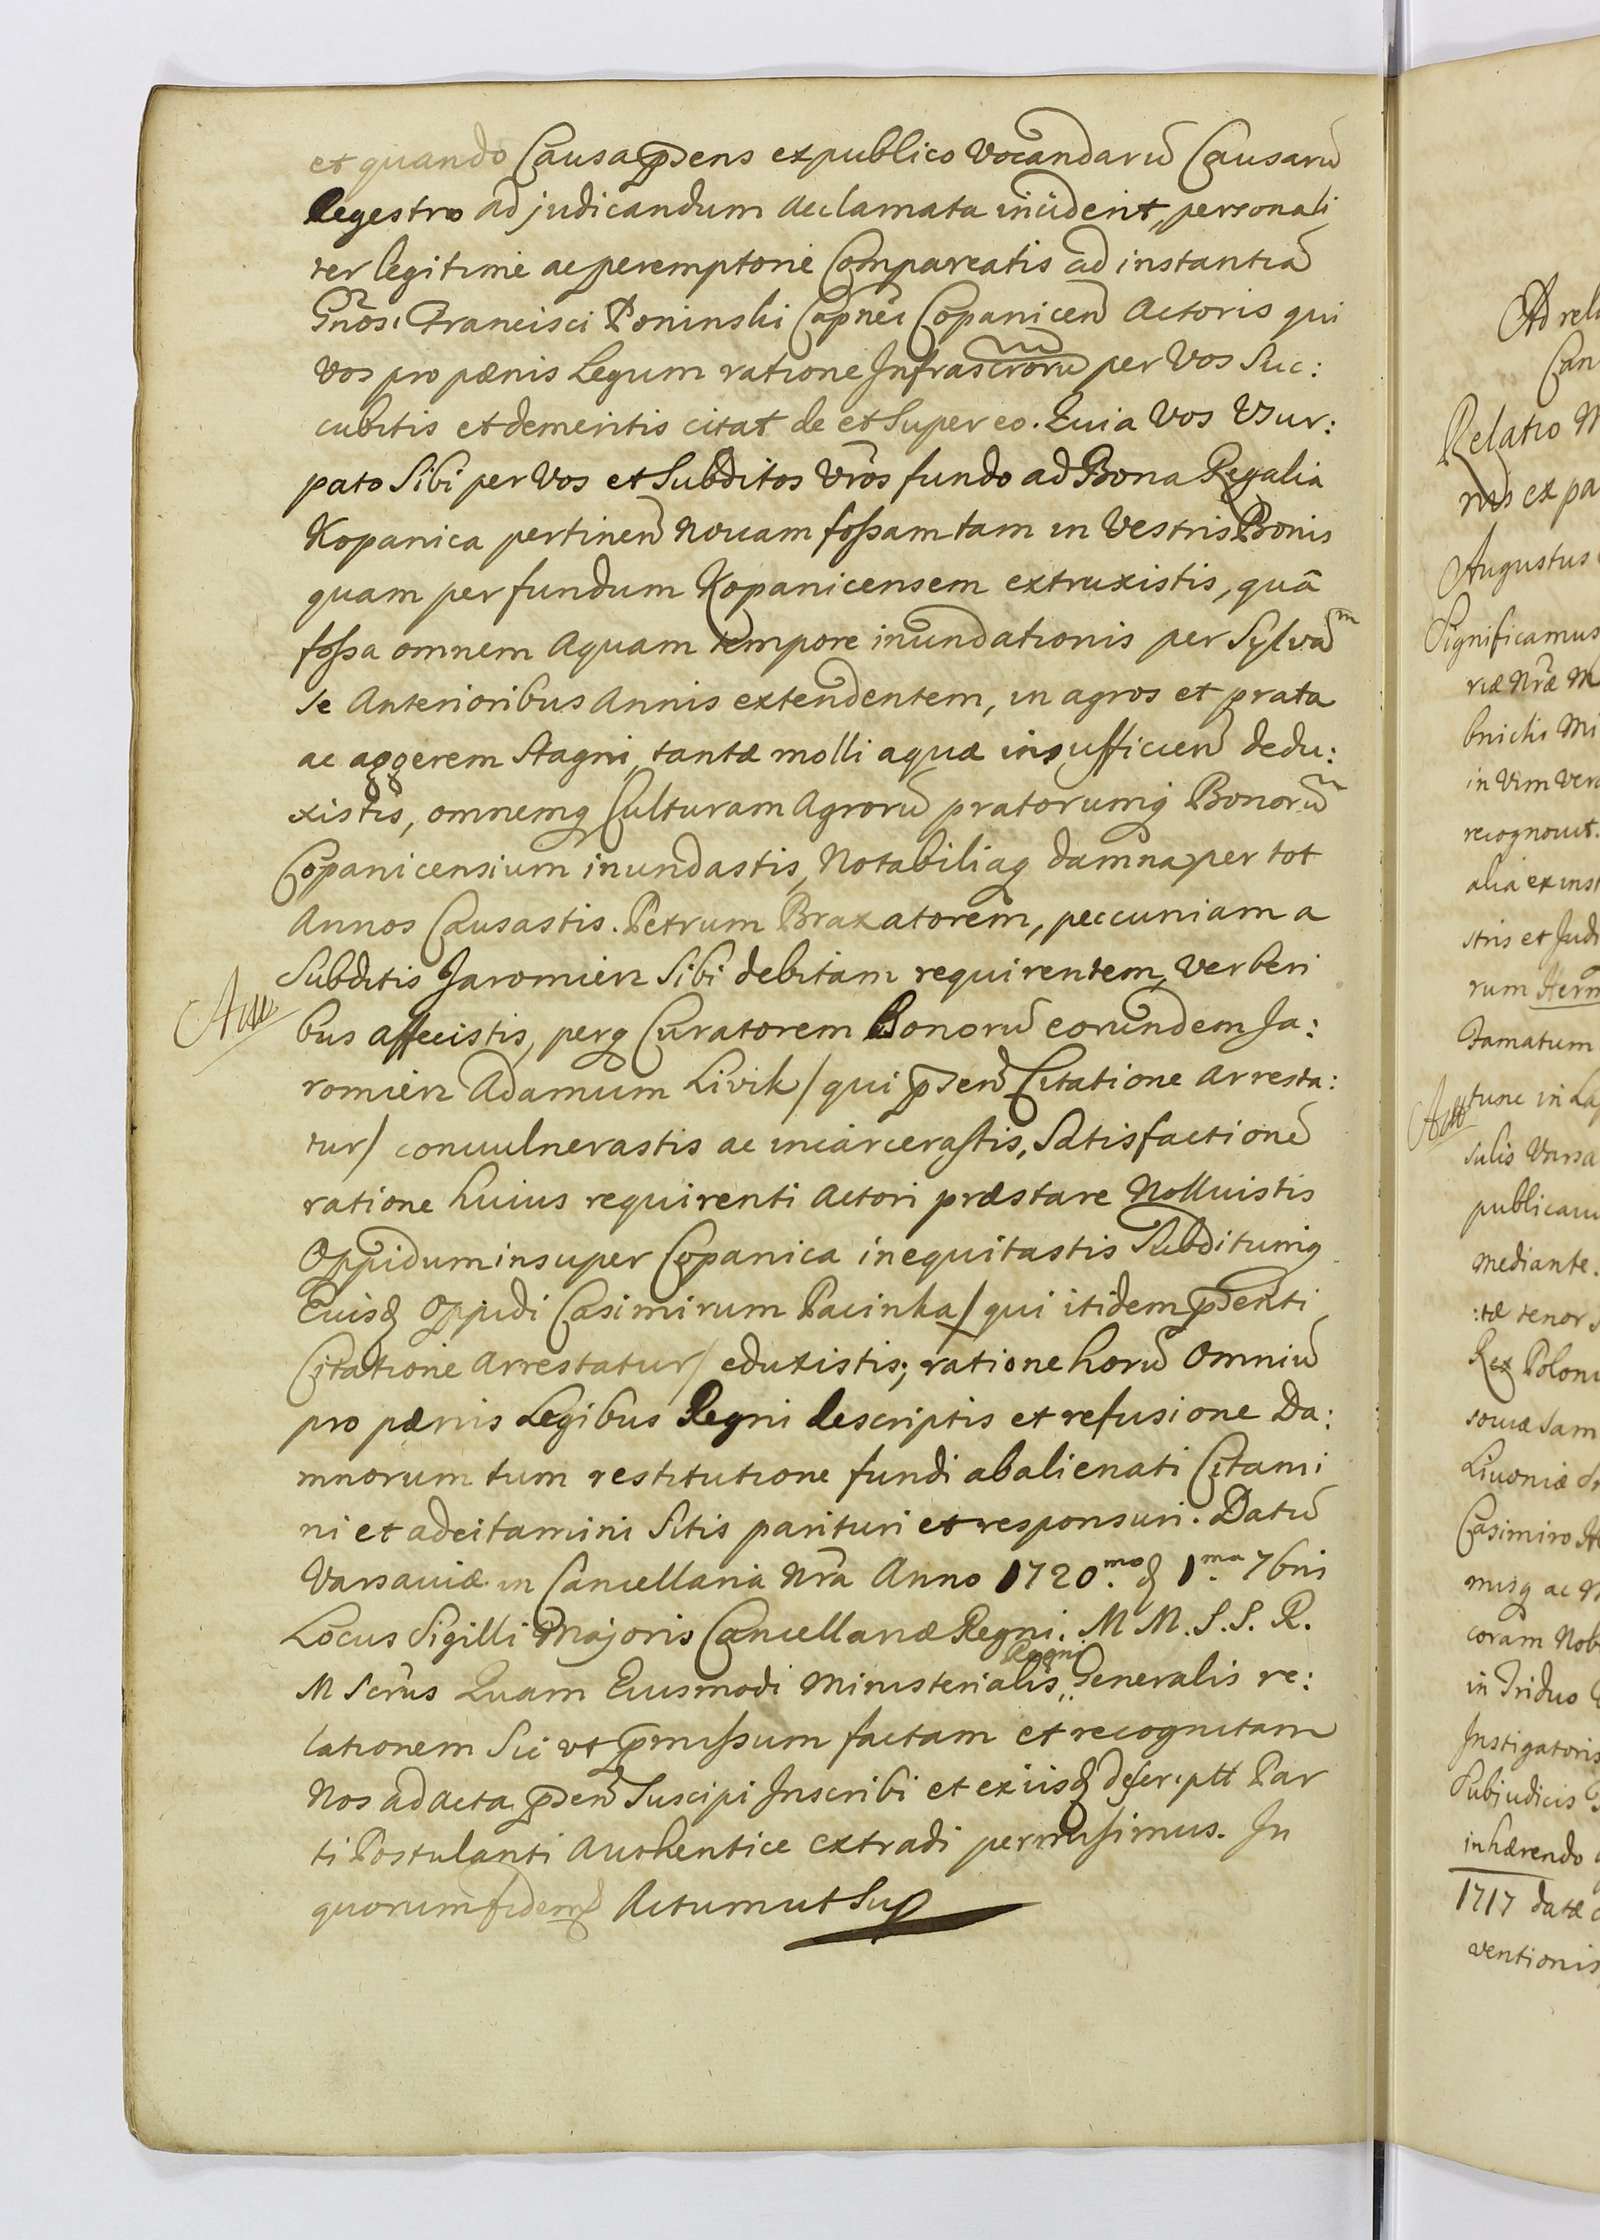 et quando Causa p̃sens ex publico vocandarũ Causarũ
Regestro ad judicandum acclamata inciderit, personali
ter legitime ac peremptorie Compareatis ad instantiã
Gñosi Francisci Poninski Capnei Copanicen̄ Actoris qui
vos pro pænis Legum ratione Infrascrõrũ per Vos Suc:
cubitis et demeritis citat de et super eo. Quia Vos Vsur:
pato Sibi per Vos et Subditos vr̃os fundo ad Bona Regalia
Kopanica pertinen̄ novam foſsam tam in Vestris Bonis
quam per fundum Kopanicensem extruxistis, quã
foſsa omnem Aquam tempore inundationis per Sylvam
se Anterioribus Annis extendentem, in agros et prata
ac aggerem Stagni, tantæ molli aquæ insufficien̄ dedu:
xistis, omnemq Culturam Agrorũ pratorumq Bonorũ
Copanicensium inundastis, Notabiliaq damna per tot
Annos Causastis. Petrum Braxatorem, peccuniam a
Subditis Jaromierz Sibi debitam requirentem, verberi
bus affecistis, perq Curatorem Bonorũ eorundem Ja:
romierz Adamum Livik / qui p̃sen̄ Citatione Arresta:
tur / convulnerastis ac incarcerastis, Satisfactionẽ
ratione huius requirenti Actori præstare Nolluistis
Oppidum insuper Copanica inequitastis Subditumq
Eiusd Oppidi Casimirum Pacinka / qui itidem p̃senti
Citatione Arrestatur / eduxistis; ratione horũ Omniũ
pro pænis Legibus Regni descriptis et refusione Da:
mnorum tum restitutione fundi abalienati Citami
ni et adcitamini Sitis parituri et responsuri. Datũ
Varsaviæ in Cancellaria Nr̃a Anno 1720.mo d 1.ma 7bris
Locus Sigilli Majoris Cancellariæ Regni. M M. S. S. R.
Regni
M Scr̃us Quam Eiusmodi Ministerialis,, Generalis re:
lationem Sic vt p̃miſsum factam et recognitam
Nos ad acta p̃sen̄ Suscipi Inscribi et ex iisd descriptt Par
ti Postulanti Authentice extradi permisimus. In
quorum fidem Actum ut Sup
Ad rel
Can
Relatio M
ris ex pa
Augustus
Significamus
riæ Nr̃æ M
bnicki Mi
in Vim vera
recognovit.
alia ex inst
stris et Judi
rum Herm
Famatum
tunc in La
sulis Varsa
publicam
mediante.
:tæ tenor s
Rex Poloni
soviæ Sam
Livoniæ
Casimiro
misq ac N
coram Nob
in Triduo
Instigatoris
Subjudicis
inhærendo
1717 datæ
ventionis